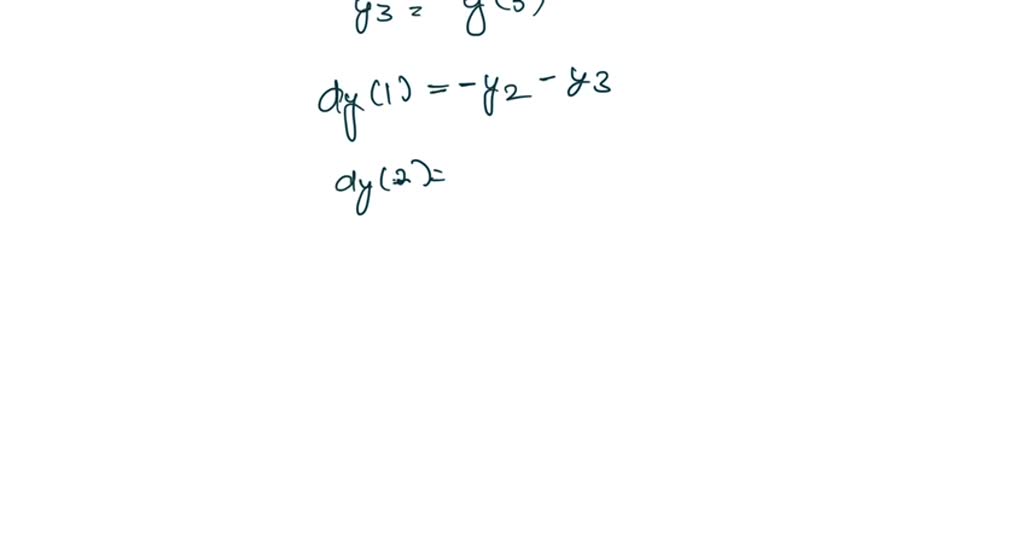 y3 = y(3)
dy(1) = -y2 - y3
dy(2)=